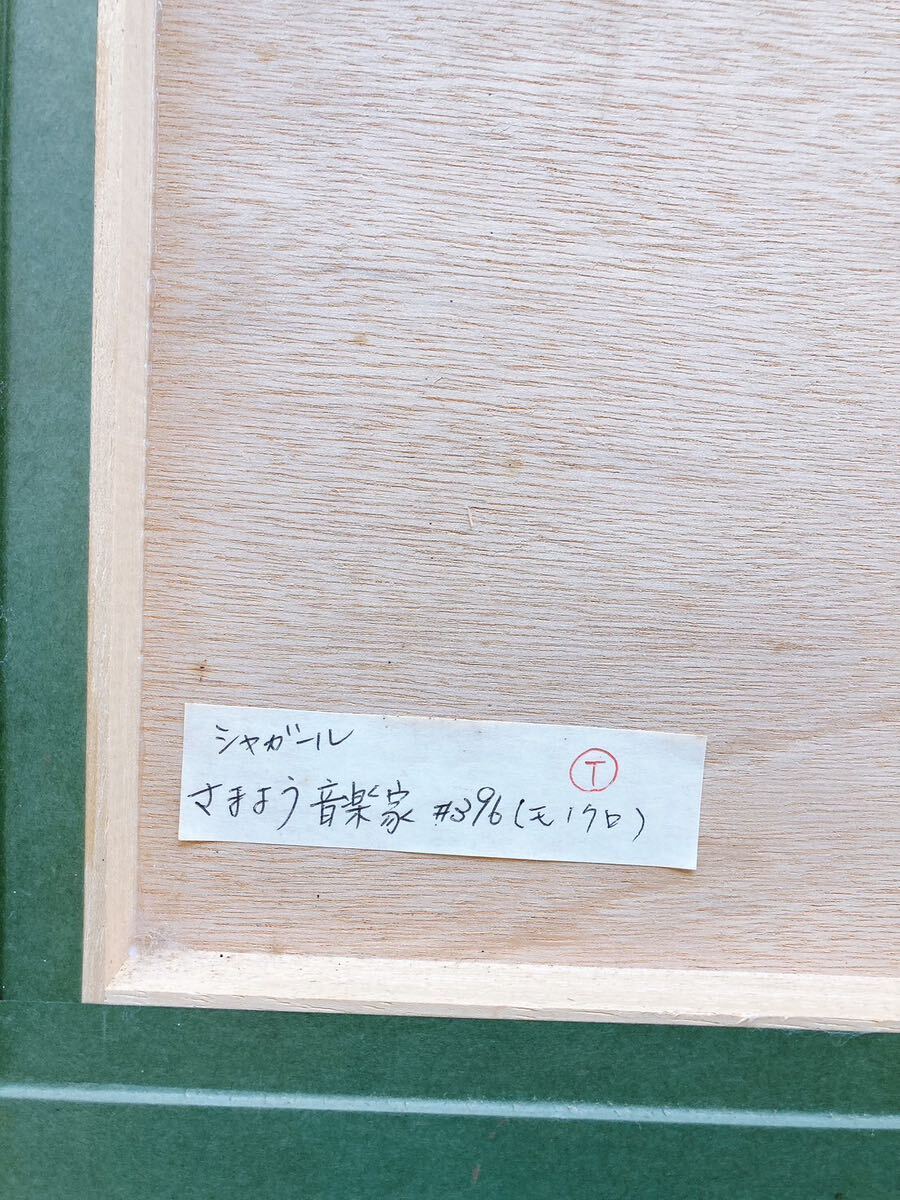 シャガール
Ⓣ
さまよう音楽家 #396(モノクロ)